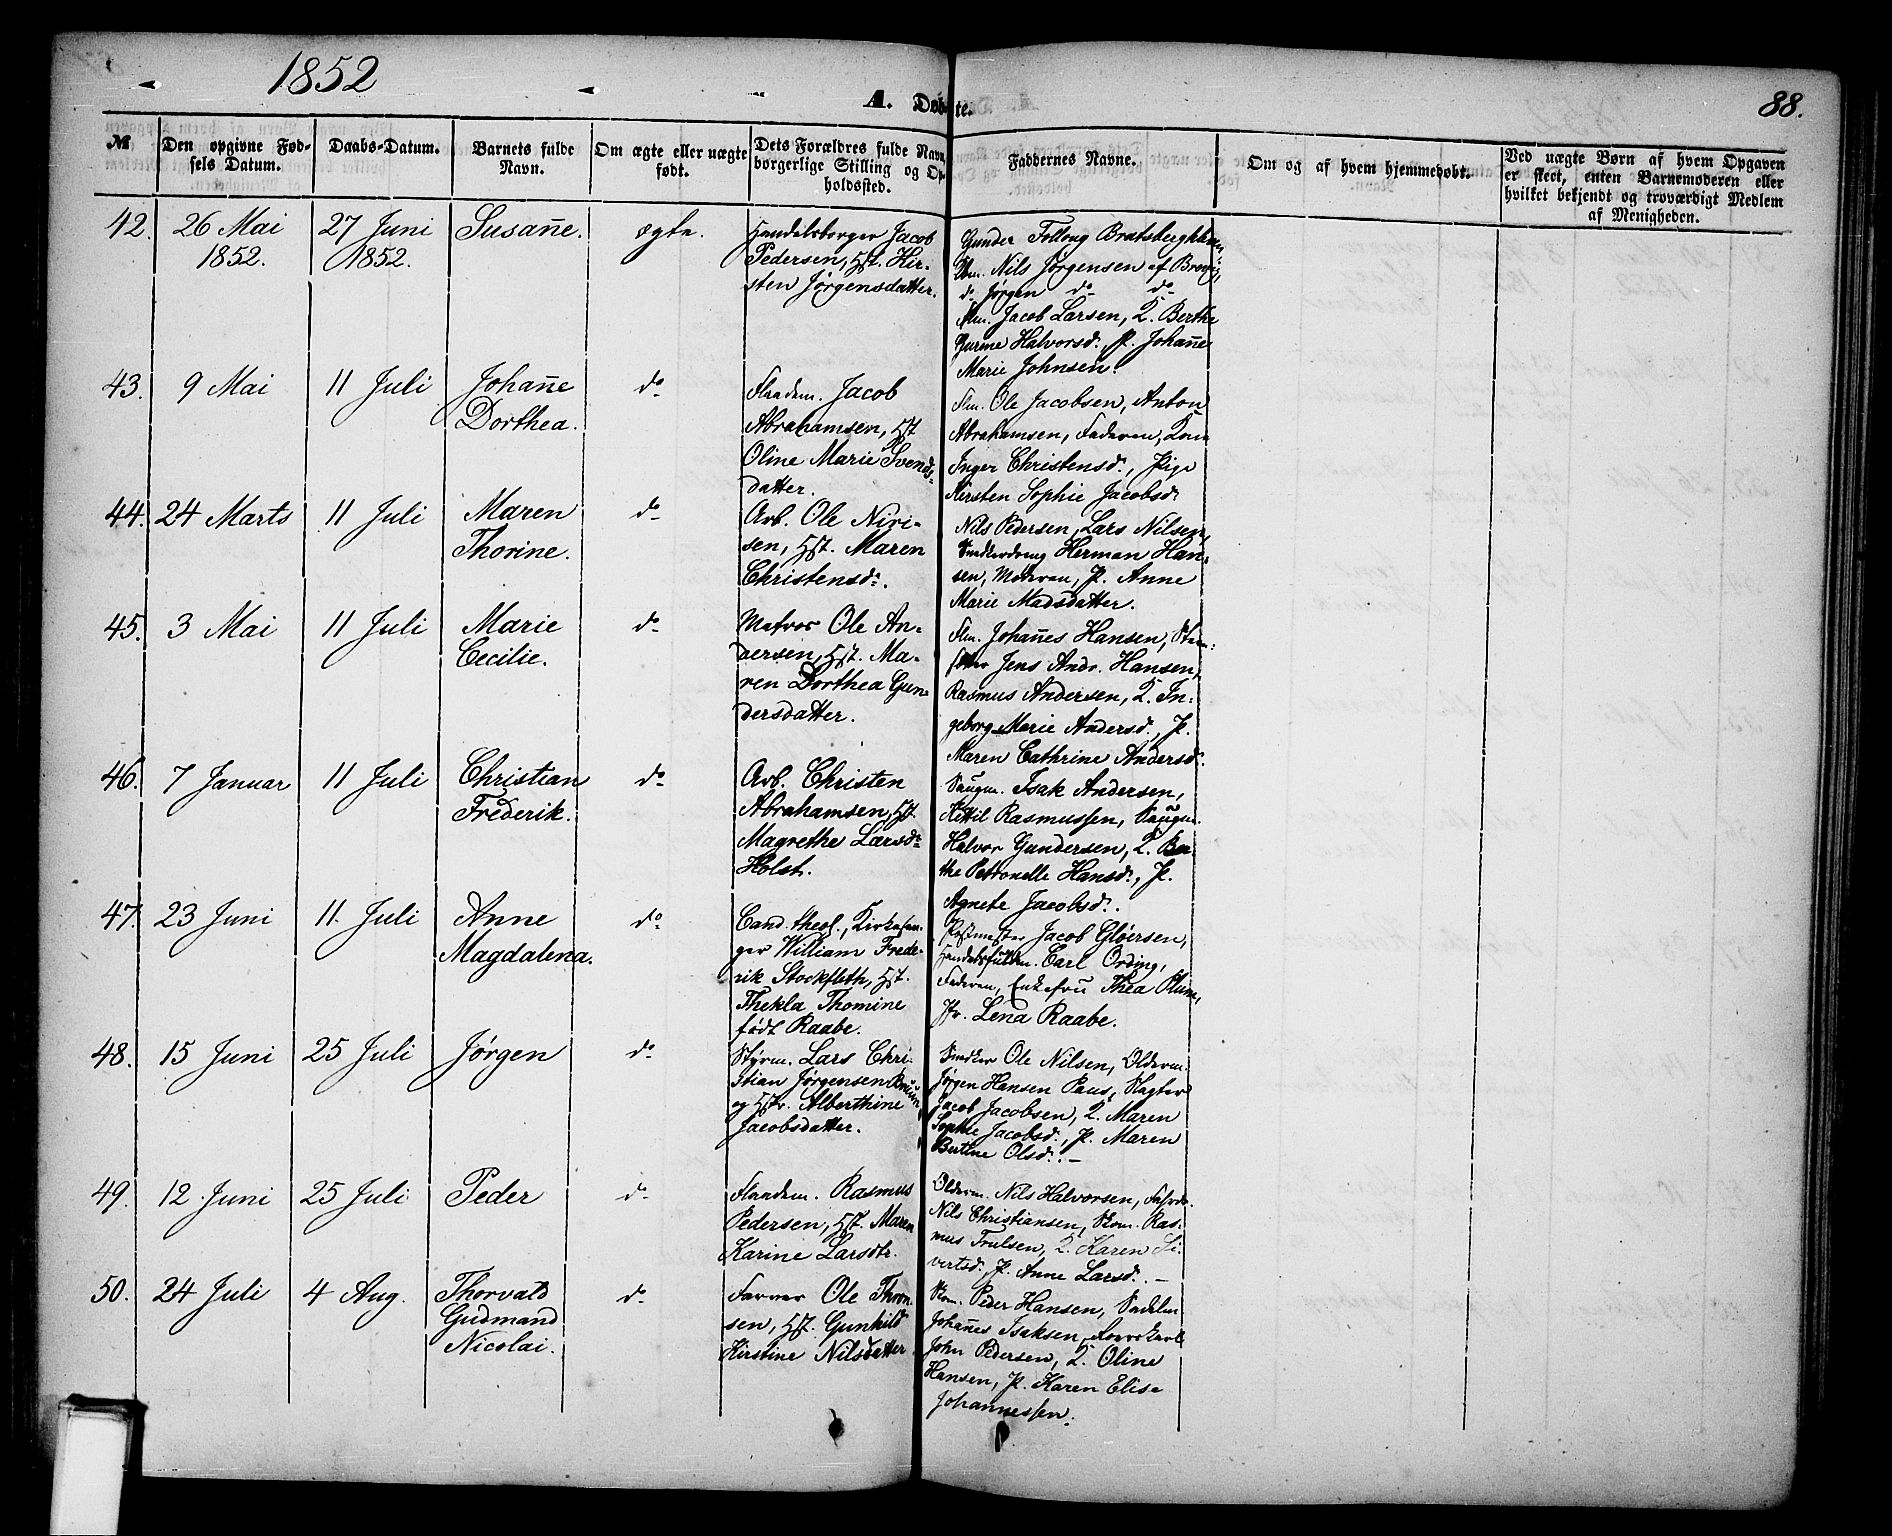 1852
A. Døbte.
88.
№
Den opgivne Fød-
sels Datum.
Daabs-Datum.
Barnets fulde
Navn.
Om ægte eller uægte
født.
Dets Forældres fulde Navn,
borgerlige Stilling og Op-
holdssted.
Faddernes Navne.
Om og af hvem hjemmedøbt.
Ved uægte Børn af hvem Opgaven
er skeet, enten Barnemoderen eller
hvilket bekjendt og troværdigt Medlem
af Menigheden.
42.
26 Mai
1852.
27 Juni
1852.
Susan̄e.
ægte.
Handelsborger Jacob
Pedersen, Hst. Kir-
sten Jørgensdatter.
Gunder Follong
Nils Jørgensen af Brevig,
do Jørgen do do
Jacob Larsen, K. Berthe
Halvorsd., P. Johan̄e
Marie Johnsen.
43.
9 Mai
11 Juli
Johan̄e
Dorthea.
do
Flaadem. Jacob
Abrahamsen, Hst.
Oline Marie Svends-
datter.
Flm. Ole Jacobsen, Anton
Abrahamsen, Faderen, Kone
Inger Christensd., Pige
Kirsten Sophie Jacobsd.
44.
24 Marts
11 Juli
Maren
Thorine.
do
Arb. Ole Niri-
sen, Hst. Maren
Christensd.
Nils Pedersen, Lars Nilsen,
Snedkerdreng Herman Han-
sen, Moderen, P. Anne
Marie Madsdatter.
45.
3 Mai
11 Juli
Marie
Cecilie.
do
Matros Ole An-
dersen, Hst. Ma-
ren Dorthea Gun-
dersdatter.
Flm. Johan̄es Hansen,
Jens Andr. Hansen,
Rasmus Andersen, K. In-
geborg Marie Andersd., P.
Maren Cathrine Andersd.
46.
7 Januar
11 Juli
Christian
Frederik.
do
Arb. Christen
Abrahamsen, Hst.
Magrethe Larsd.
Holst.
Saugm. Isak Andersen,
Kittil Rasmussen, Saugm.
Halvor Gundersen, K. Ber-
the Petronelle Hansd., P.
Agnete Jacobsd.
47.
23 Juni
11. Juli
Anne
Magdalena.
do
Cand. theol., Kirkesan-
ger William Frede-
rik Stockfleth, Hst.
Thekla Thomine
født Raabe.
Postmester Jacob Gløersen,
Handelsfuldm. Carl Ording,
Faderen, Enkefru Thea Blum,
Jfr. Lena Raabe.
48.
15 Juni
25 Juli
Jørgen
do
Styrm. Lars Chri-
stian Jørgensen Bruun
og Hstr. Alberthine
Jacobsdatter.
Snedker Ole Nilsen, Olderm.
Jørgen Hansen Paus, Slagter
Jacob Jacobsen, K. Maren
Sophie Jacobsd., P. Maren
Bertine Olsd. –
49.
12 Juni
25 Juli
Peder
do
Flaadem. Rasmus
Pedersen, Hst. Maren
Karine Larsdtr.
Olderm. Nils Halvorsen,
Nils Christiansen, Skom. Ras-
mus Trulsen, K. Karen Si-
vertsd., P. Anne Larsd. –
50.
24 Juli
4 Aug.
Thorvald
Gudmand
Nicolai.
do
Farver Ole Thom-
sen, Hst. Gunhild
Kirstine Nilsdatter.
Skom. Peder Hansen, Sadelm.
Johan̄es Isaksen, Farvekarl
John Pedersen, K. Oline
Hansen, P. Karen Elise
Johannessen.